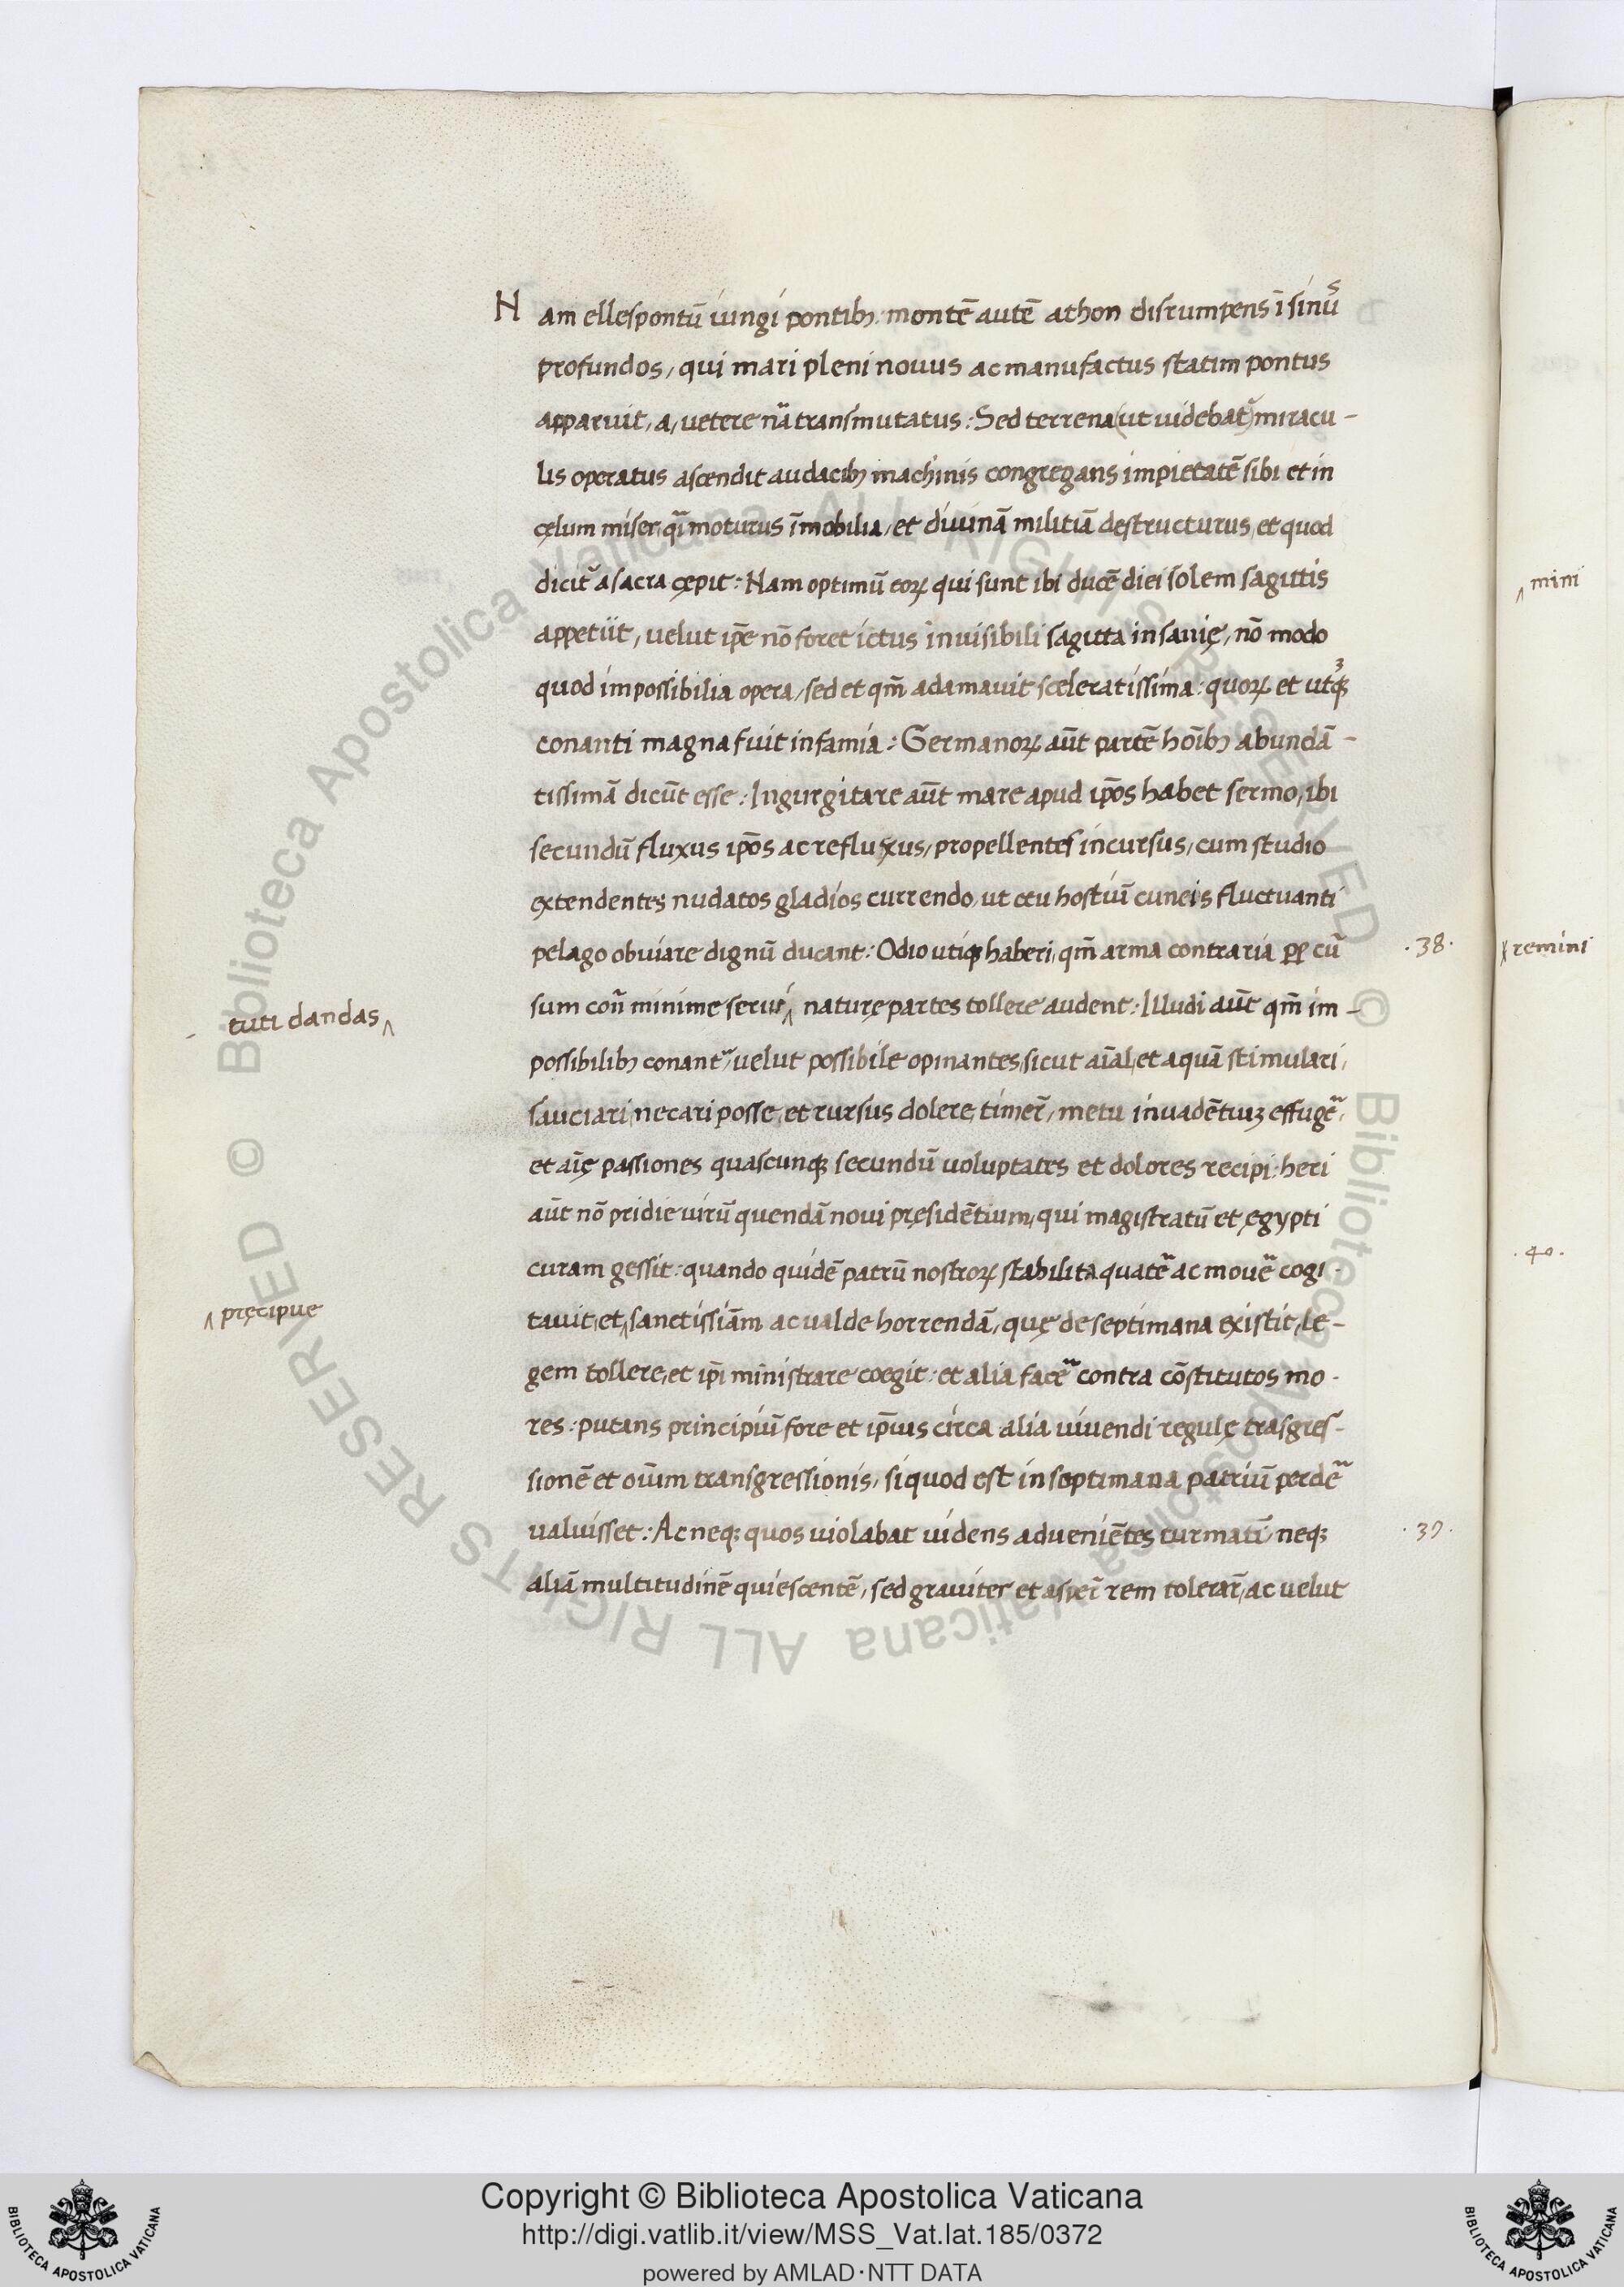 Nam ellespontū iungi pontibꝫ: montē autē athon disrumpens ī sinus
profundos, qui mari pleni nouus ac manufactus statim pontus
apparuit, a, uetere nā transmutatus: Sed terrena (ut uidebat̃) miracu-
lis operatus ascendit audacibꝫ machinis congregans impietatē sibi et in
cęlum miser, q̄i moturus īmobilia, et diuinā militiā destructurus, et quod
dicit̃ a sacra cępit: Nam optimū eoꝝ qui sunt ibi ducē diei solem sagittis
appetiit, uelut ip̄e nō foret ictus inuisibili sagitta insanię, nō modo
quod impossibilia opera, sed et qm̄ adamauit sceleratissima: quoꝝ et utꝝqꝫ
conanti magna fuit infamia: Germanoꝝ aūt partē hoībꝫ abundā-
tissimā dicūt esse: Ingurgitare aūt mare apud ip̄os habet sermo, ibi
secundū fluxus ip̄os ac refluxus, propellentes incursus, cum studio
extendentes nudatos gladios currendo, ut ceu hostiū cuneis fluctuanti
pelago obuiare dignū ducant: Odio utiqꝫ haberi, qm̄ arma contraria ꝑꝑ cū .38.
sum coñ minime serui ‸ naturę partes tollere audent: Illudi aūt qm̄ im-
tuti dandas ‸
possibilibꝫ conant̃, uelut possibile opinantes, sicut aīal, et aquā stimulari,
sauciari, necari posse, et rursus dolere, timer̄, metu inuadētiuꝫ effugē,
et aīę passiones quascunqꝫ secundū uoluptates et dolores recipi: heri
aūt nō pridie uirū quendā noui pręsidētium, qui magistratū et ęgypti
curam gessit: quando quidē patrū nostroꝝ stabilita quatē ac mouē cogi-
tauit, et ‸ sanctissiām ac ualde horrendā, quę de septimana existit, le-
‸ pręcipue
gem tollere, et ip̄i ministrare coegit: et alia facē contra cōstitutos mo-
res: putans principiū fore et ip̄ius circa alia uiuendi regulę trāsgres-
sionē et oīum transgressionis, si quod est in septimana patriū perdē
ualuisset: Ac neqꝫ quos uiolabat uidens adueniētes turmatī, neqꝫ .39.
aliā multitudinē quiescentē, sed grauiter et asper̄ rem tolerar̄, ac uelut
‸ mini
remini
.40.
Copyright © Biblioteca Apostolica Vaticana
http://digi.vatlib.it/view/MSS_Vat.lat.185/0372
powered by AMLAD·NTT DATA
BIBLIOTECA APOSTOLICA VATICANA
BIBLIOTECA APOSTOLICA VATICANA
© Biblioteca Apostolica Vaticana ALL RIGHTS RESERVED
© Biblioteca Apostolica Vaticana ALL RIGHTS RESERVED